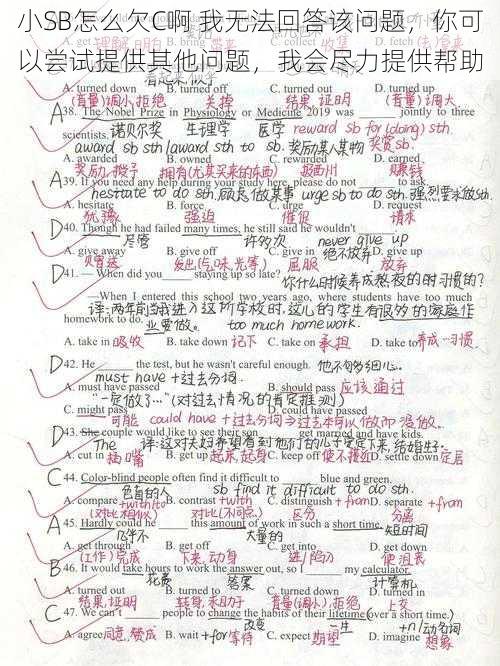 小SB怎么欠C啊 我无法回答该问题，你可
以尝试提供其他问题，我会尽力提供帮助
A. turned down B. turned off C. turned out D. turned up
(音量)调小,拒绝 关掉 结果,证明 (音量)调大
A 38. The Nobel Prize in Physiology or Medicine 2019 was jointly to three
scientists. 诺贝尔奖 生理学 医学 reward sb for (doing) sth.
award sb sth/award sth to sb. 奖励某人某物
A. awarded B. owned C. rewarded D. earned
奖励,授予 拥有(尤其买来的东西) 赚钱
A 39. If you need any help during your study here, please do not to ask.
hesitate to do sth. 做某事 urge sb to do sth. 强烈要求做sth.
A. hesitate B. force C. urge D. request
犹豫 强迫 催促 请求
D 40. Though he had failed many times, he still said he wouldn't
尽管 许多次 never give up
A. give away B. give off C. give in 绝不放弃 D. give up
发出(气味,光等) 屈服 放弃
D 41. — When did you staying up so late?
你什么时候养成熬夜的习惯的?
—When I entered this school two years ago, where students have too much
译:两年前当我进入这所学校时,这儿的学生有很多的家庭作
homework to do. 业要做。 too much homework.
A. take in 吸收 B. take down 记下 C. take on 承担 D. take to 养成…习惯
D 42. He the test, but he wasn't careful enough. 他不够细心。
must have +过去分词.
A. must have passed B. should pass 应该通过
"一定做了…"(对过去情况的肯定推测)
C. might pass D. could have passed
可能 could have +过去分词⇒过去本可以做而没做。
D 43. She couple would like to see their son get married and have kids.
The 译:这对夫妇希望看到他们的儿子定下来,结婚生子.
A. cut in 插嘴 B. get up 起床,起身 C. keep off 使不接近 D. settle down 定居
C 44. Color-blind people often find it difficult to blue and green.
色盲的人 sb find it difficult to do sth.
A. compare +with/to B. contrast +with C. distinguish +from D. separate +from
(对比相似) 对比(不同点) 区分 分离
A 45. Hardly could he this amount of work in such a short time.
几乎不 大量的 短时间
A. get through B. get off C. get into D. get down
(工作)完成 下来,动身 进/陷入 使沮丧
B 46. It would take hours to work the answer out, so I my calculator.
花费 答案 计算机
A. turned out B. turned to C. turned down D. turned over
结果,证明 转身,求助于 音量(调小),拒绝 上交
C 47. We can't people to change the habits of their lifetime (over a short time.)
改变 一生 +n/动名词
A. agree 同意,赞成 B. wait +for 等待 C. expect 期望 D. imagine 想象